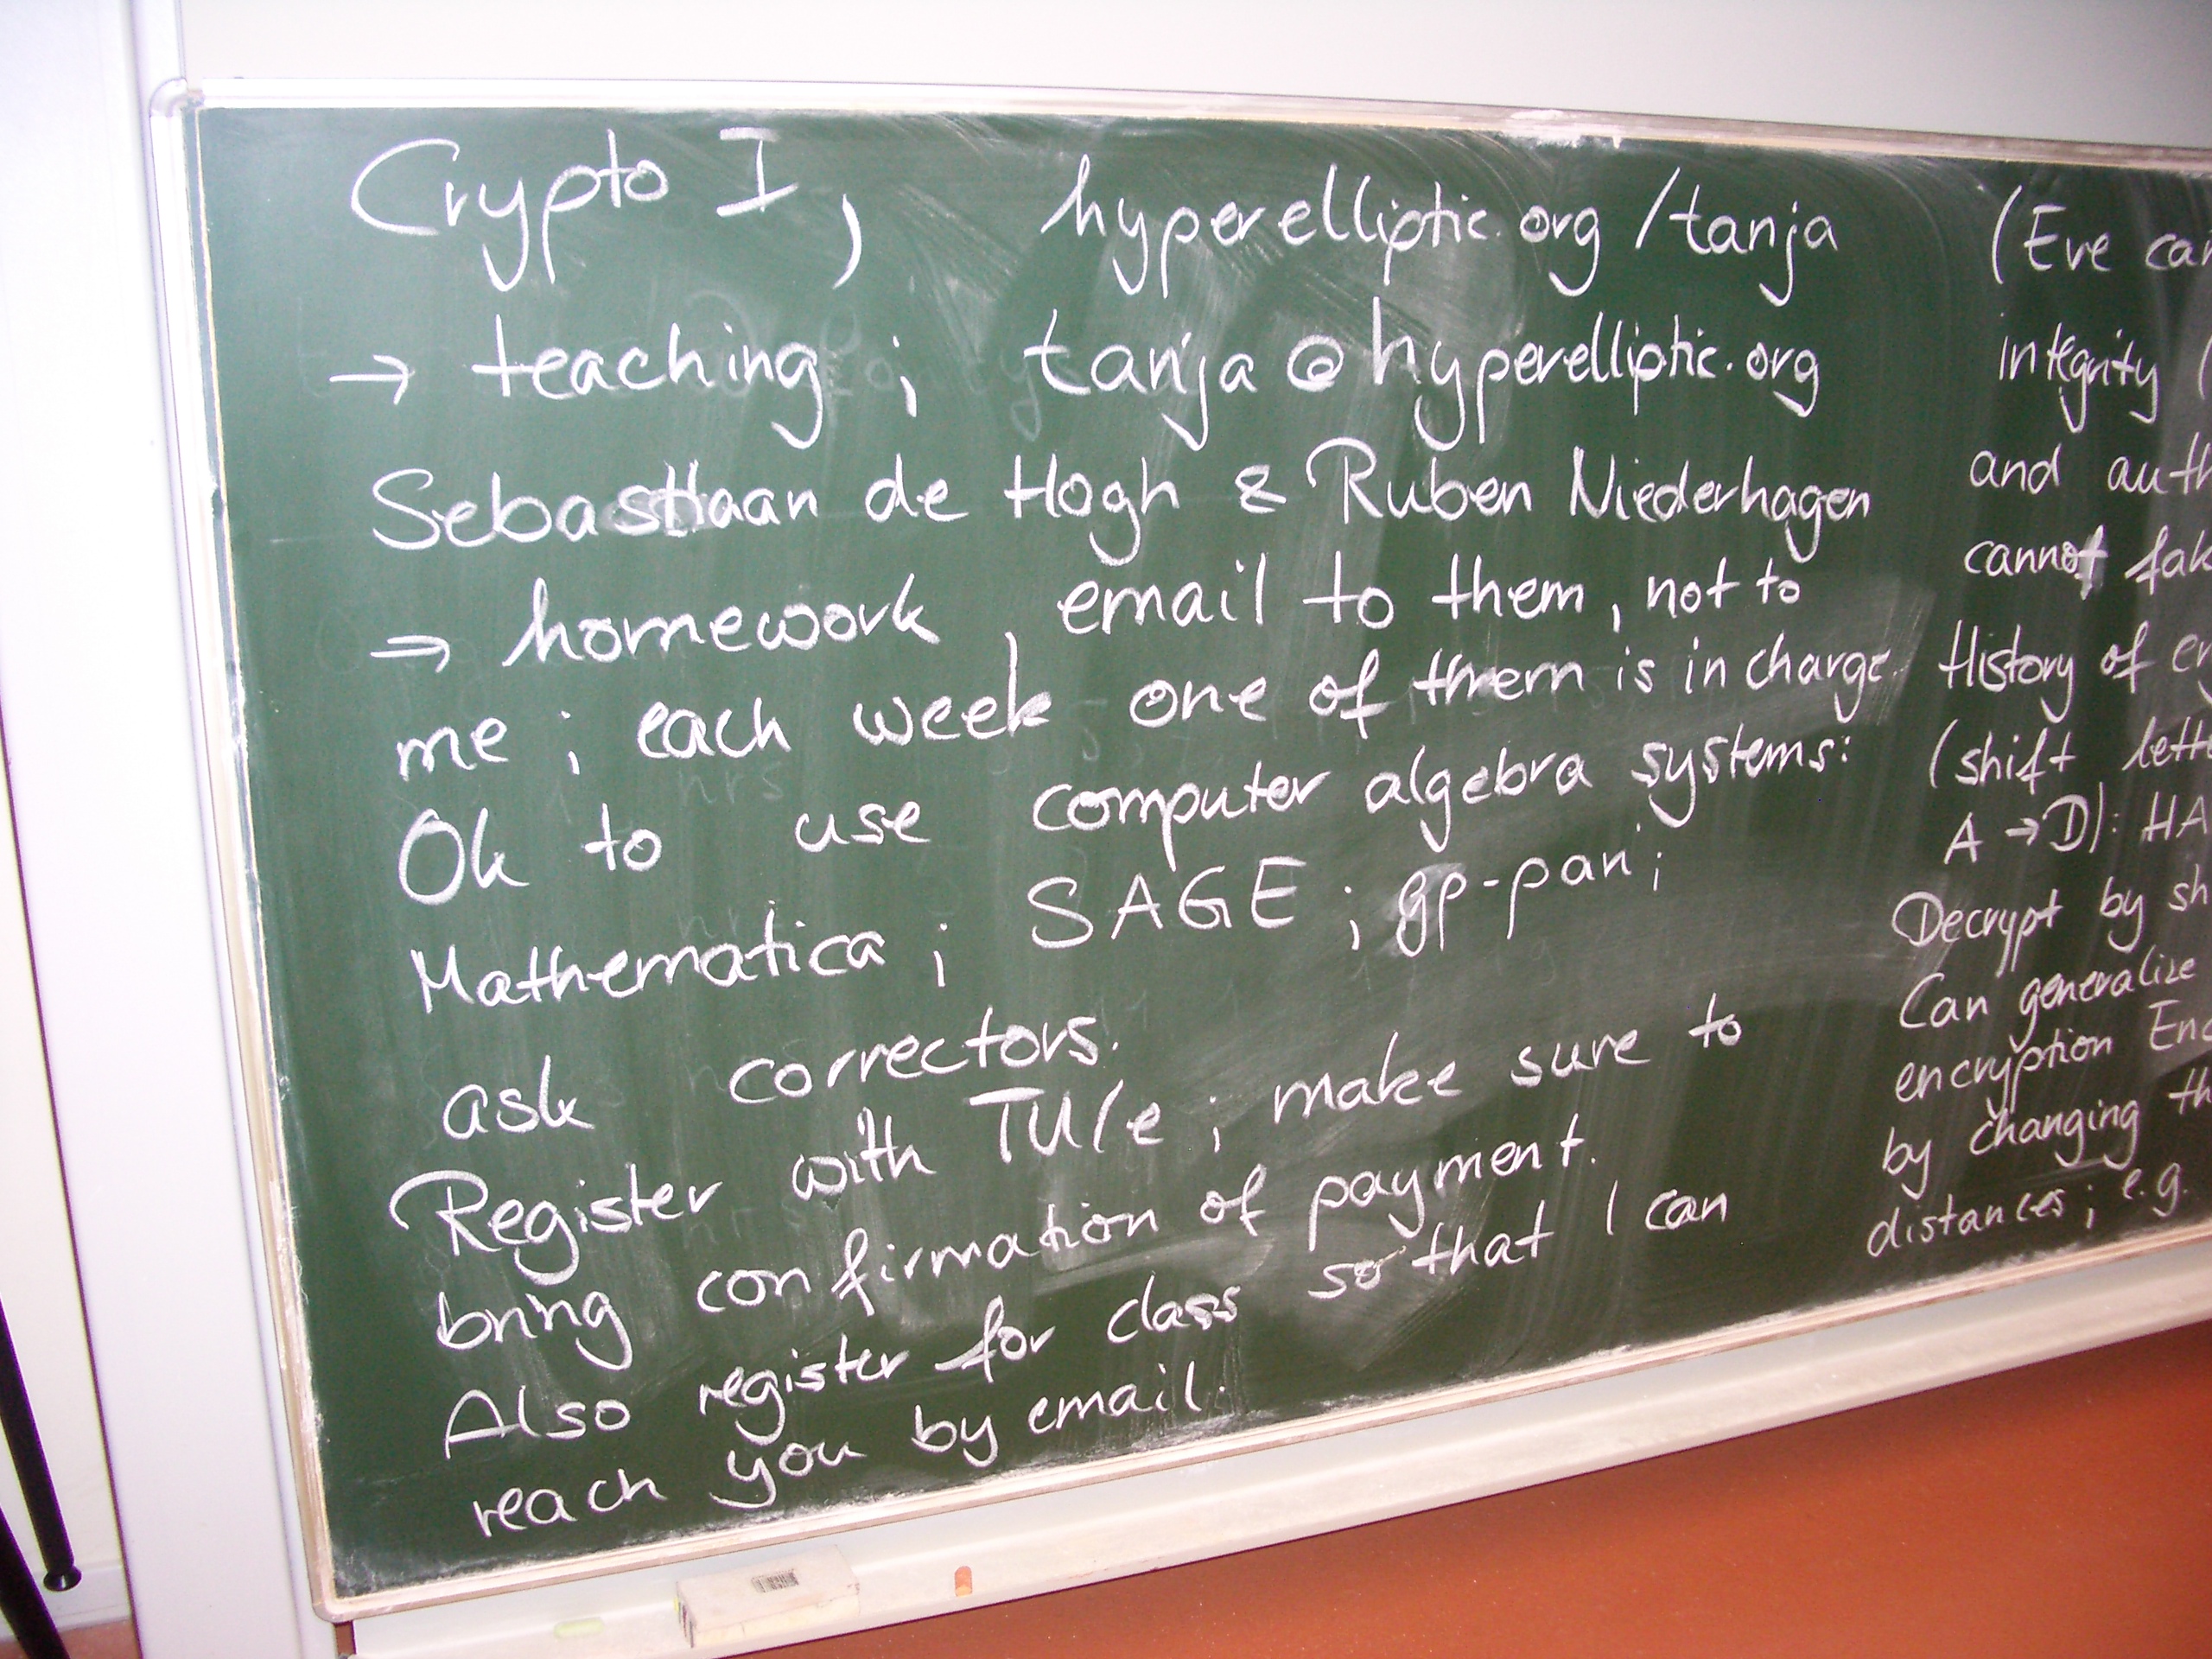 Crypto I, hyperelliptic.org/tanja
→ teaching; tanja@hyperelliptic.org
Sebastiaan de Hogh & Ruben Niederhagen
→ homework, email to them, not to
me; each week one of them is in charge.
Ok to use computer algebra systems:
Mathematica; SAGE; gp-pari;
ask correctors.
Register with TU/e; make sure to
bring confirmation of payment.
Also register for class so that I can
reach you by email.
(Eve
integrity (
and
cannot
History of
(shift
A → D): HA
Decrypt by
Can generalize
encryption
by changing
distances; e.g.